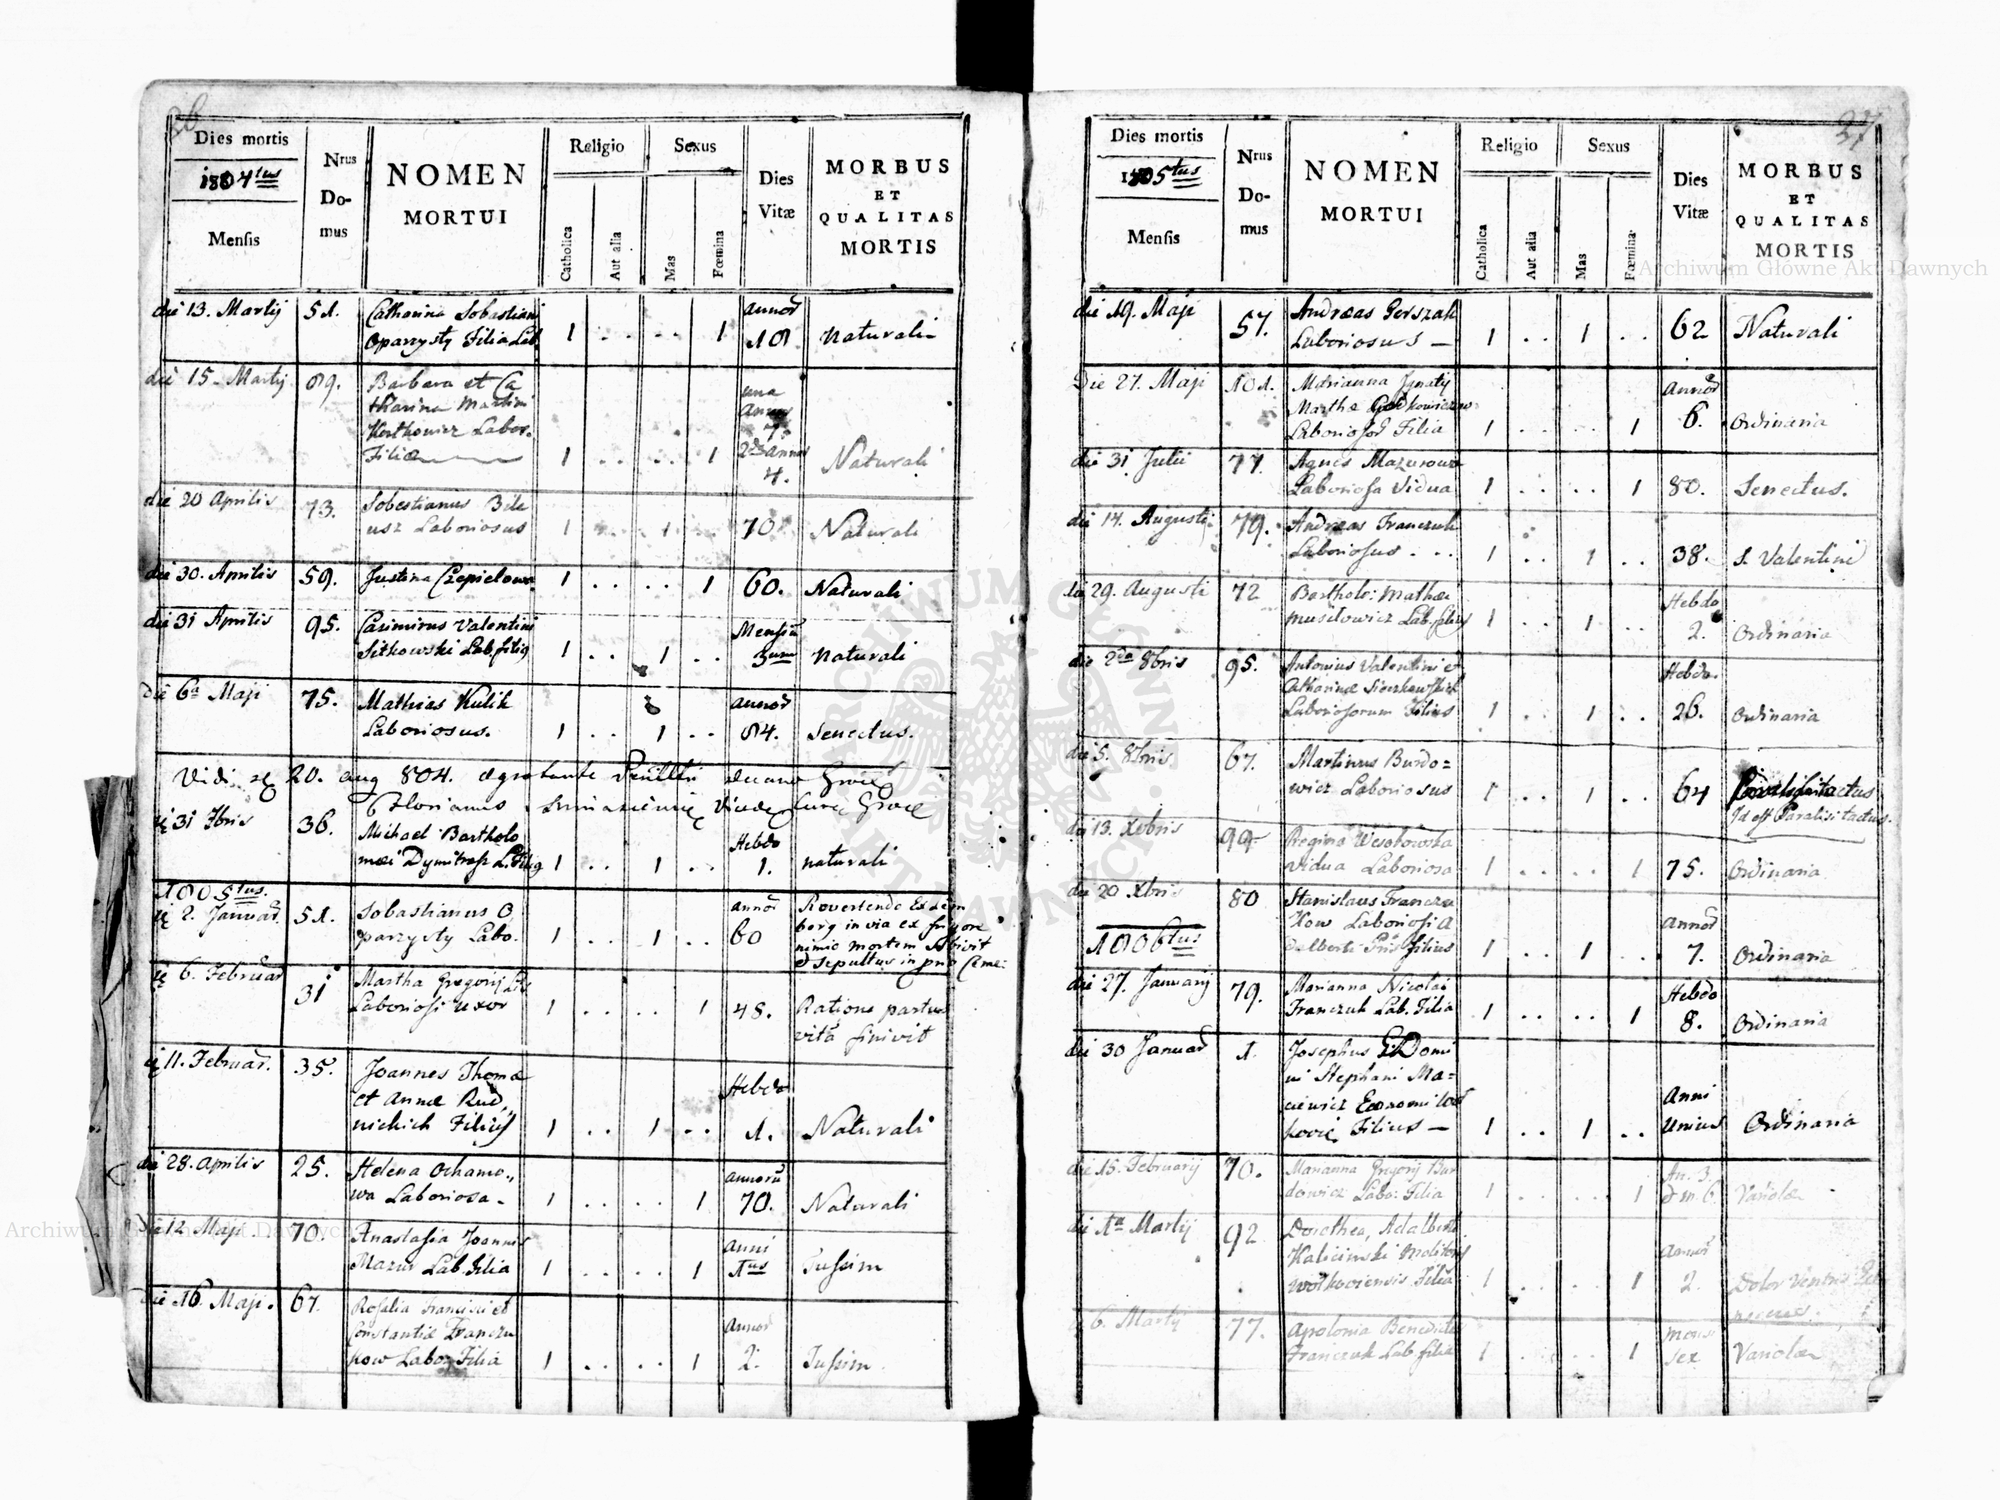 26
Dies mortis
1804tus
Mensis
Nrus
Do-
mus
NOMEN
MORTUI
Religio
Catholica
Aut alia
Sexus
Mas
Fœmina
Dies
Vitæ
MORBUS
ET
QUALITAS
MORTIS
die 13. Martij 51. Catharina Sobastiani
Oparzysty Filia Lab. 1 .. .. 1 annor 18 naturali
die 15. Martij 89. Barbara et Ca
tharina Martini
Labor.
Filiæ 1 .. .. 1 una Annor 7. 2da annor 4. Naturali
die 20 Aprilis 73. Sobestianus Bile
usz Laboriosus 1 .. 1 .. 70. Naturali
die 30. Aprilis 59. Justina Czopielowa 1 .. .. 1 60. Naturali
die 31 Aprilis 95. Casimirus Valentini
Sitkowski Lab. filig 1 .. 1 .. Mensiu 3um naturali
die 6a Maji 75. Mathias Kulik
Laboriosus. 1 .. 1 .. annor 84. Senectus.
Vidi 20. aug 804. ægrotante
Florianus
31 36. Michael Bartholo
mæi 1 .. 1 .. Hebdo 1. naturali
1805tus.
2. Januar. 51. Sobastianus O
parzysty Labo. 1 .. 1 .. annor 60 Revertendo Ex Lem
berg in via ex frigore
nimio mortem
et sepultus in
6. Februar 31 Martha Gregorij
Laboriosi uxor 1 .. .. 1 48. Ratione partus
vitã finivit
11. Februar. 35. Joannes Thomæ
et Annæ Rud,,
nickich Filius 1 .. 1 .. Hebdo 1. Naturali
die 28. Aprilis 25. Helena Ochamo,,
wa Laboriosa - 1 .. .. 1 annorũ 70. Naturali
die 12 Maji 70. Anastasia Joannis
Mazur Lab. Filia 1 .. .. 1 Anni 1us Tussim
die 16. Maji. 67. Rosalia Francisci et
Constantiæ Franczu
kow Labo. Filia 1 .. .. 1 Annor 2. Tussim.
27
Dies mortis
1805tus
Mensis
Nrus
Do-
mus
NOMEN
MORTUI
Religio
Catholica
Aut alia
Sexus
Mas
Fœmina
Dies
Vitæ
MORBUS
ET
QUALITAS
MORTIS
die 19. Maji 57. Andræas Gerszak
Laboriosus — 1 .. 1 .. 62 Naturali
Die 27. Maji 101. Marianna Ignatij
Marthæ
Filia 1 .. .. 1 Annor 6. Ordinaria
die 31 Julii 77. Agnes Mazurowa
Laboriosa Vidua 1 .. .. 1 80. Senectus.
die 14. Augusti 79. Andreas Franczuk
Laboriosus . .. 1 .. 1 .. 38. S. Valentini
die 29. Augusti 72 Bartholo: Mathæi
Musilowicz Lab. 1 .. 1 .. Hebdo 2. Ordinaria
die 2da 8bris 95. Antonius Valentini et
Catharinæ
Laboriosorum Filius 1 .. 1 .. Hebdo. 26. Ordinaria
die 5. 67. Martinus Burdo=
wicz Laboriosus 1 .. 1 .. 64
Id est Paralisi tactus.
die 13. Xbris 99. Regina Wesołowska
Vidua Laboriosa 1 .. .. 1 75. Ordinaria
die 20 Xbris 80 Stanislaus Franczu
kow Laboriosi A
dalberti Filius 1 .. 1 .. Annor 7. Ordinaria
1806tus
die 27. Januarij 79. Marianna Nicolai
Franczuk Lab. Filia 1 .. .. 1 Hebdo 8. Ordinaria
die 30 Januar 1. Josephus Domi
ni Stephani Ma=
ciewicz Economi
Filius — 1 .. 1 .. Anni unius Ordinaria
die 15. Februarij 70. Marianna Gregorij Bur
dowicz Labo: Filia 1 .. .. 1 An. 3. et m. 6. Variolæ
die 1a Martij 92 Dorothea, Adalberti
Kalicinski Molitoris
Filia 1 .. .. 1 Annor 2. Dolor Ventris
6. Martij 77. Apolonia Benedicti
Franczuk Lab. filia 1 .. .. 1 mens. sex Variolæ
ARCHIWUM GŁÓWNE AKT DAWNYCH
Archiwum Główne Akt Dawnych
Archiwum Główne Akt Dawnych